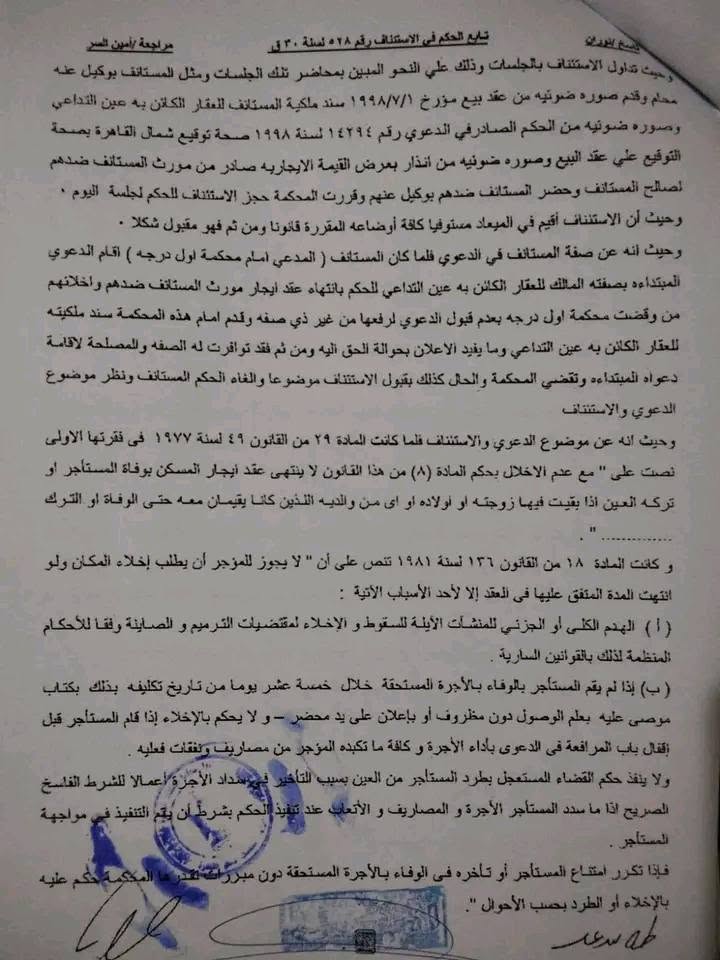 ناسخ/نوران تابع الحكم في الاستئناف رقم ٥٢٨ لسنة ٣٠ ق مراجعة/أمين السر
وحيث تداول الاستئناف بالجلسات وذلك علي النحو المبين بمحاضر تلك الجلسات ومثل المستانف بوكيل عنه
محام وقدم صوره ضوئيه من عقد بيع مؤرخ ١٩٩٨/٧/١ سند ملكية المستانف للعقار الكائن به عين التداعي
وصوره ضوئيه من الحكم الصادرفي الدعوي رقم ١٤٢٩٤ لسنة ١٩٩٨ صحة توقيع شمال القاهرة بصحة
التوقيع علي عقد البيع وصوره ضوئيه من انذار بعرض القيمة الايجاريه صادر من مورث المستانف ضدهم
لصالح المستانف وحضر المستانف ضدهم بوكيل عنهم وقررت المحكمة حجز الاستئناف للحكم لجلسة اليوم .
وحيث أن الاستئناف أقيم في الميعاد مستوفيا كافة أوضاعه المقررة قانونا ومن ثم فهو مقبول شكلا .
وحيث انه عن صفة المستانف في الدعوي فلما كان المستانف ( المدعي امام محكمة اول درجه ) اقام الدعوي
المبتداءه بصفته المالك للعقار الكائن به عين التداعي للحكم بانتهاء عقد ايجار مورث المستانف ضدهم واخلائهم
من وقضت محكمة اول درجه بعدم قبول الدعوي لرفعها من غير ذي صفه وقدم امام هذه المحكمة سند ملكيته
للعقار الكائن به عين التداعي وما يفيد الاعلان بحوالة الحق اليه ومن ثم فقد توافرت له الصفه والمصلحة لاقامة
دعواه المبتداءه وتقضي المحكمة والحال كذلك بقبول الاستئناف موضوعا والغاء الحكم المستانف ونظر موضوع
الدعوي والاستئناف
وحيث انه عن موضوع الدعوي والاستئناف فلما كانت المادة ٢٩ من القانون ٤٩ لسنة ١٩٧٧ فى فقرتها الاولى
نصت على " مع عدم الاخلال بحكم المادة (٨) من هذا القانون لا ينتهى عقد ايجار المسكن بوفاة المستأجر او
تركه العين اذا بقيت فيها زوجته او اولاده او اى من والديه اللذين كانا يقيمان معه حتى الوفاة او الترك
.............. " .
و كانت المادة ١٨ من القانون ١٣٦ لسنة ١٩٨١ تنص على أن " لا يجوز للمؤجر أن يطلب إخلاء المكان ولو
انتهت المدة المتفق عليها فى العقد إلا لأحد الأسباب الآتية :
( أ ) الهدم الكلى أو الجزئي للمنشآت الآيلة للسقوط و الإخلاء لمقتضيات الترميم و الصيانة وفقا للأحكام
المنظمة لذلك بالقوانين السارية .
( ب) إذا لم يقم المستأجر بالوفاء بالأجرة المستحقة خلال خمسة عشر يوما من تاريخ تكليفه بذلك بكتاب
موصى عليه بعلم الوصول دون مظروف أو بإعلان على يد محضر – و لا يحكم بالإخلاء إذا قام المستأجر قبل
إقفال باب المرافعة فى الدعوى بأداء الأجرة و كافة ما تكبده المؤجر من مصاريف ونفقات فعليه .
ولا ينفذ حكم القضاء المستعجل بطرد المستأجر من العين بسبب التأخير في سداد الأجرة أعمالا للشرط الفاسخ
الصريح اذا ما سدد المستأجر الأجرة و المصاريف و الأتعاب عند تنفيذ الحكم بشرط أن يتم التنفيذ فى مواجهة
المستأجر .
فإذا تكرر امتناع المستأجر أو تأخره فى الوفاء بالأجرة المستحقة دون مبررات تقدرها المحكمة حكم عليه
بالإخلاء أو الطرد بحسب الأحوال ".